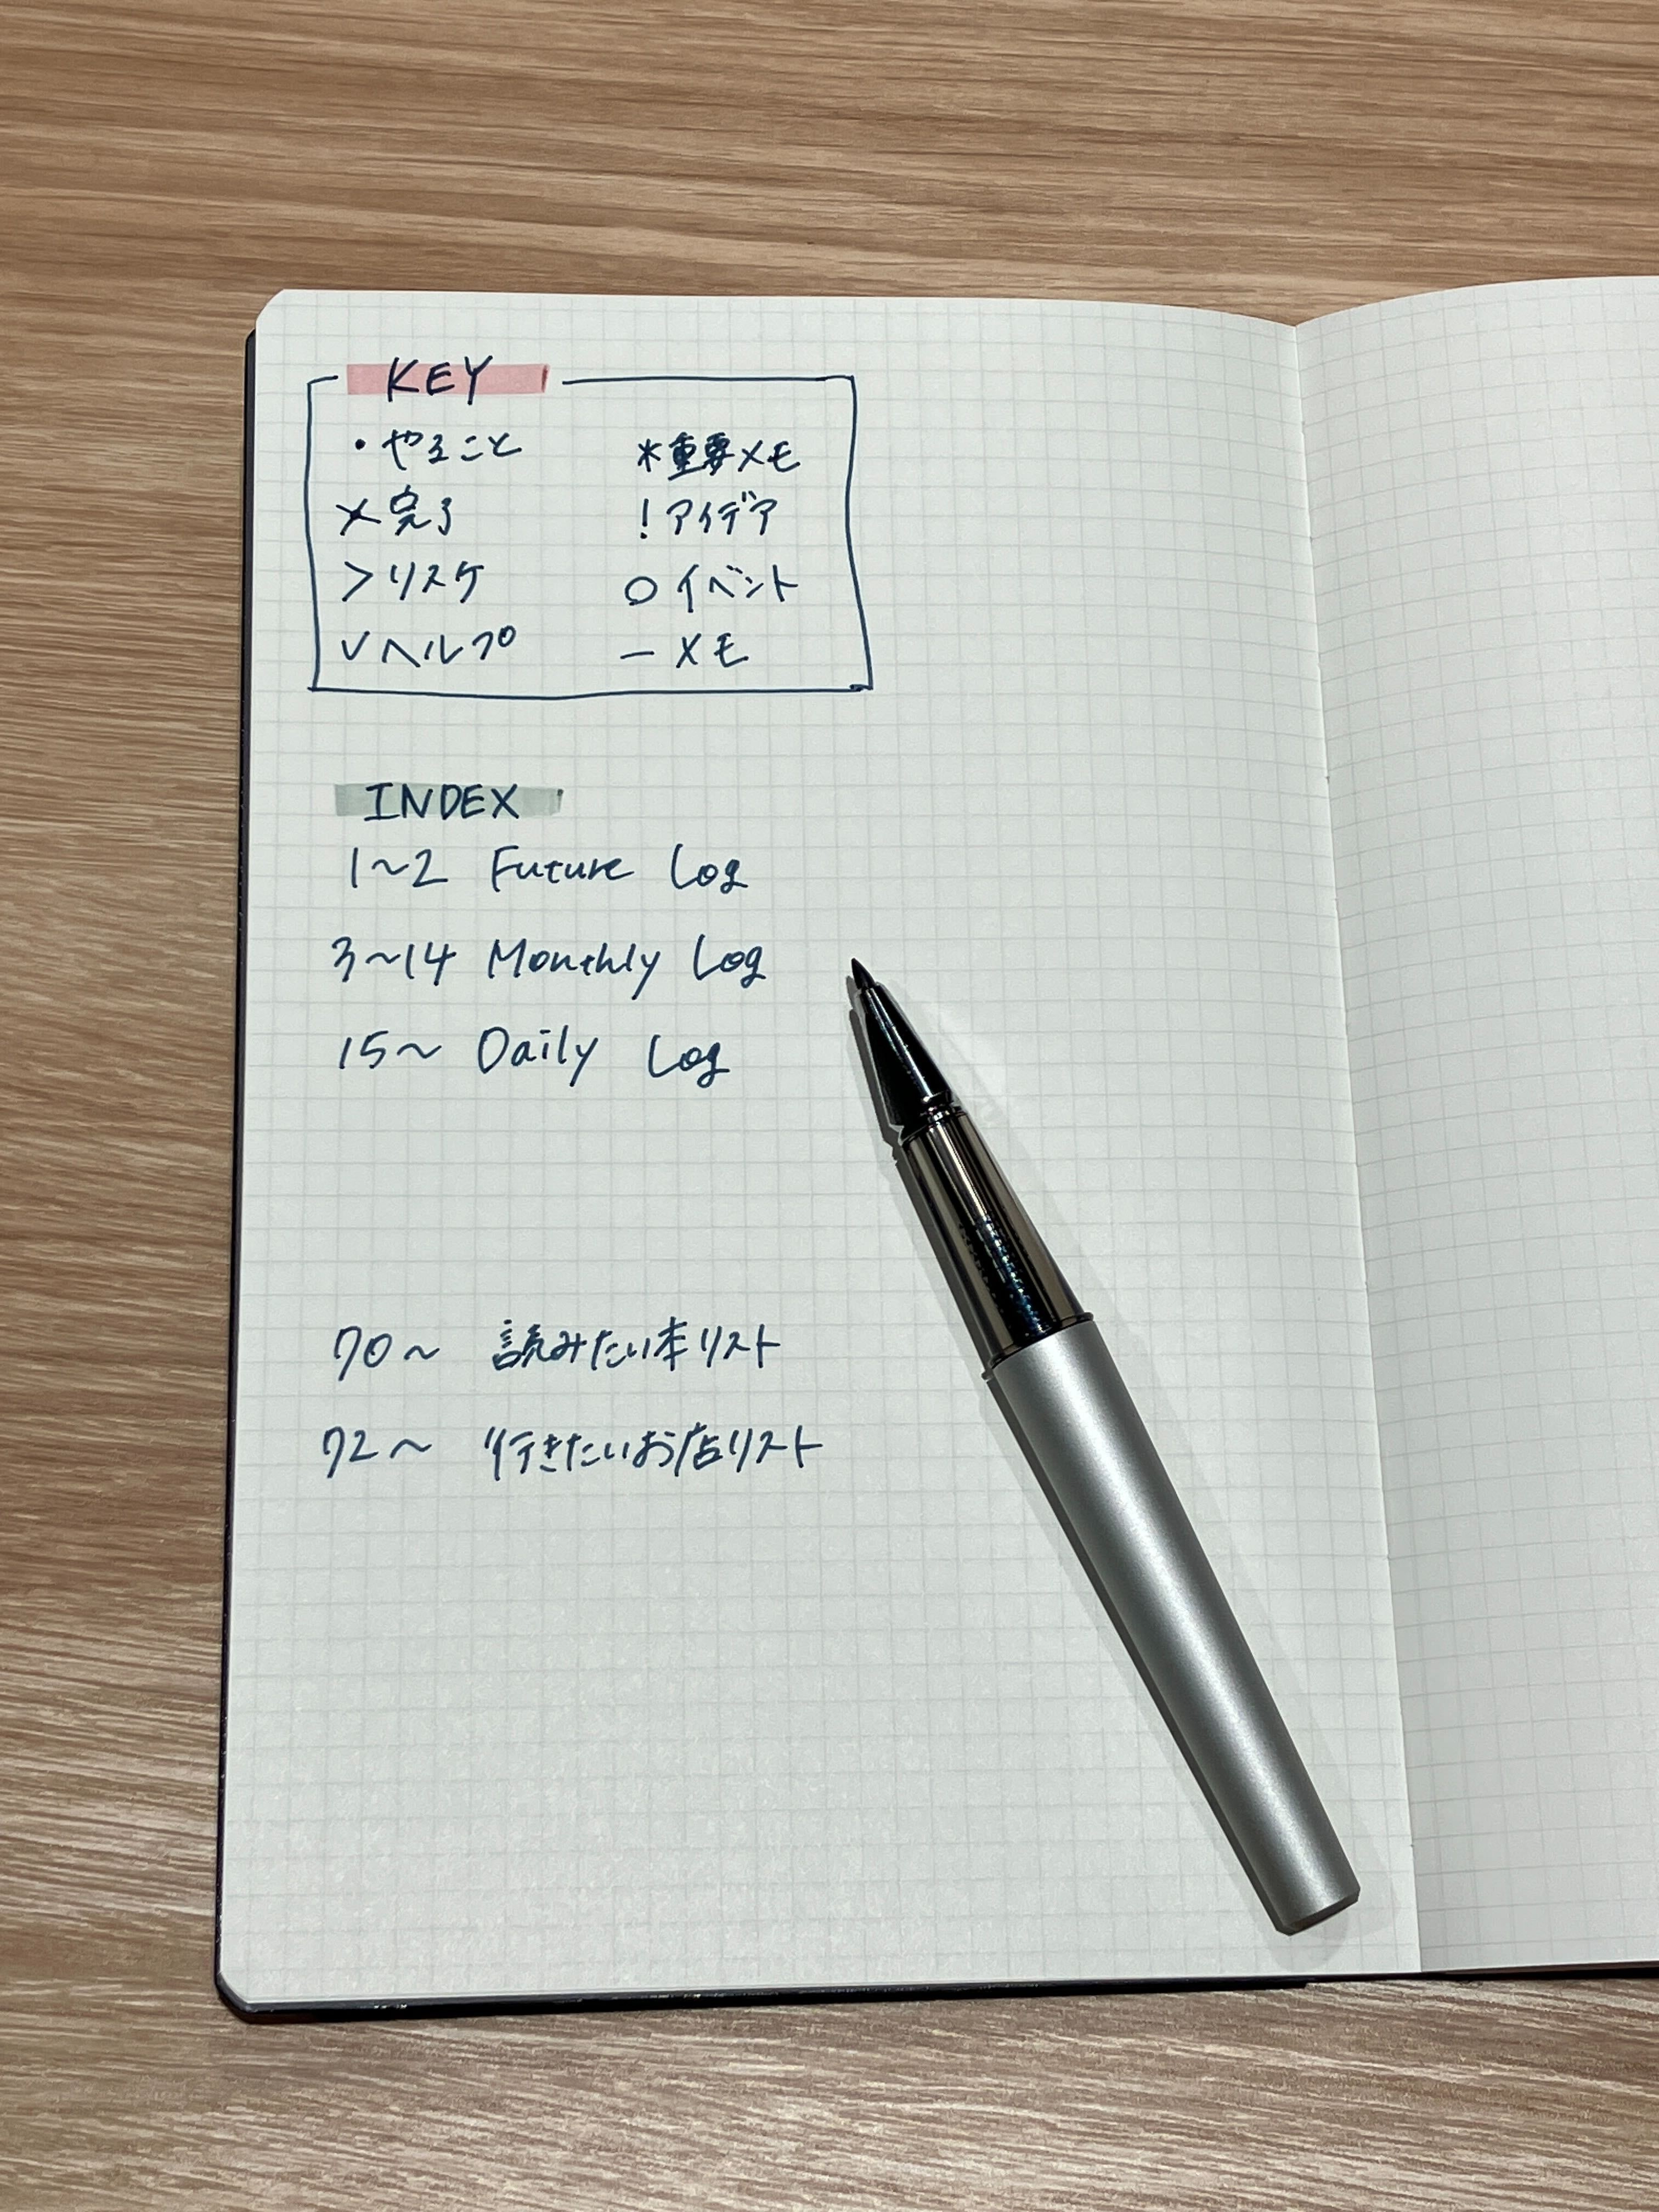 KEY
・やること
×完了
>リスケ
✓ヘルプ
*重要メモ
!アイデア
○イベント
―メモ
INDEX
1~2 Future Log
3~14 Monthly Log
15~ Daily Log
70~ 読みたい本リスト
72~ 行きたいお店リスト